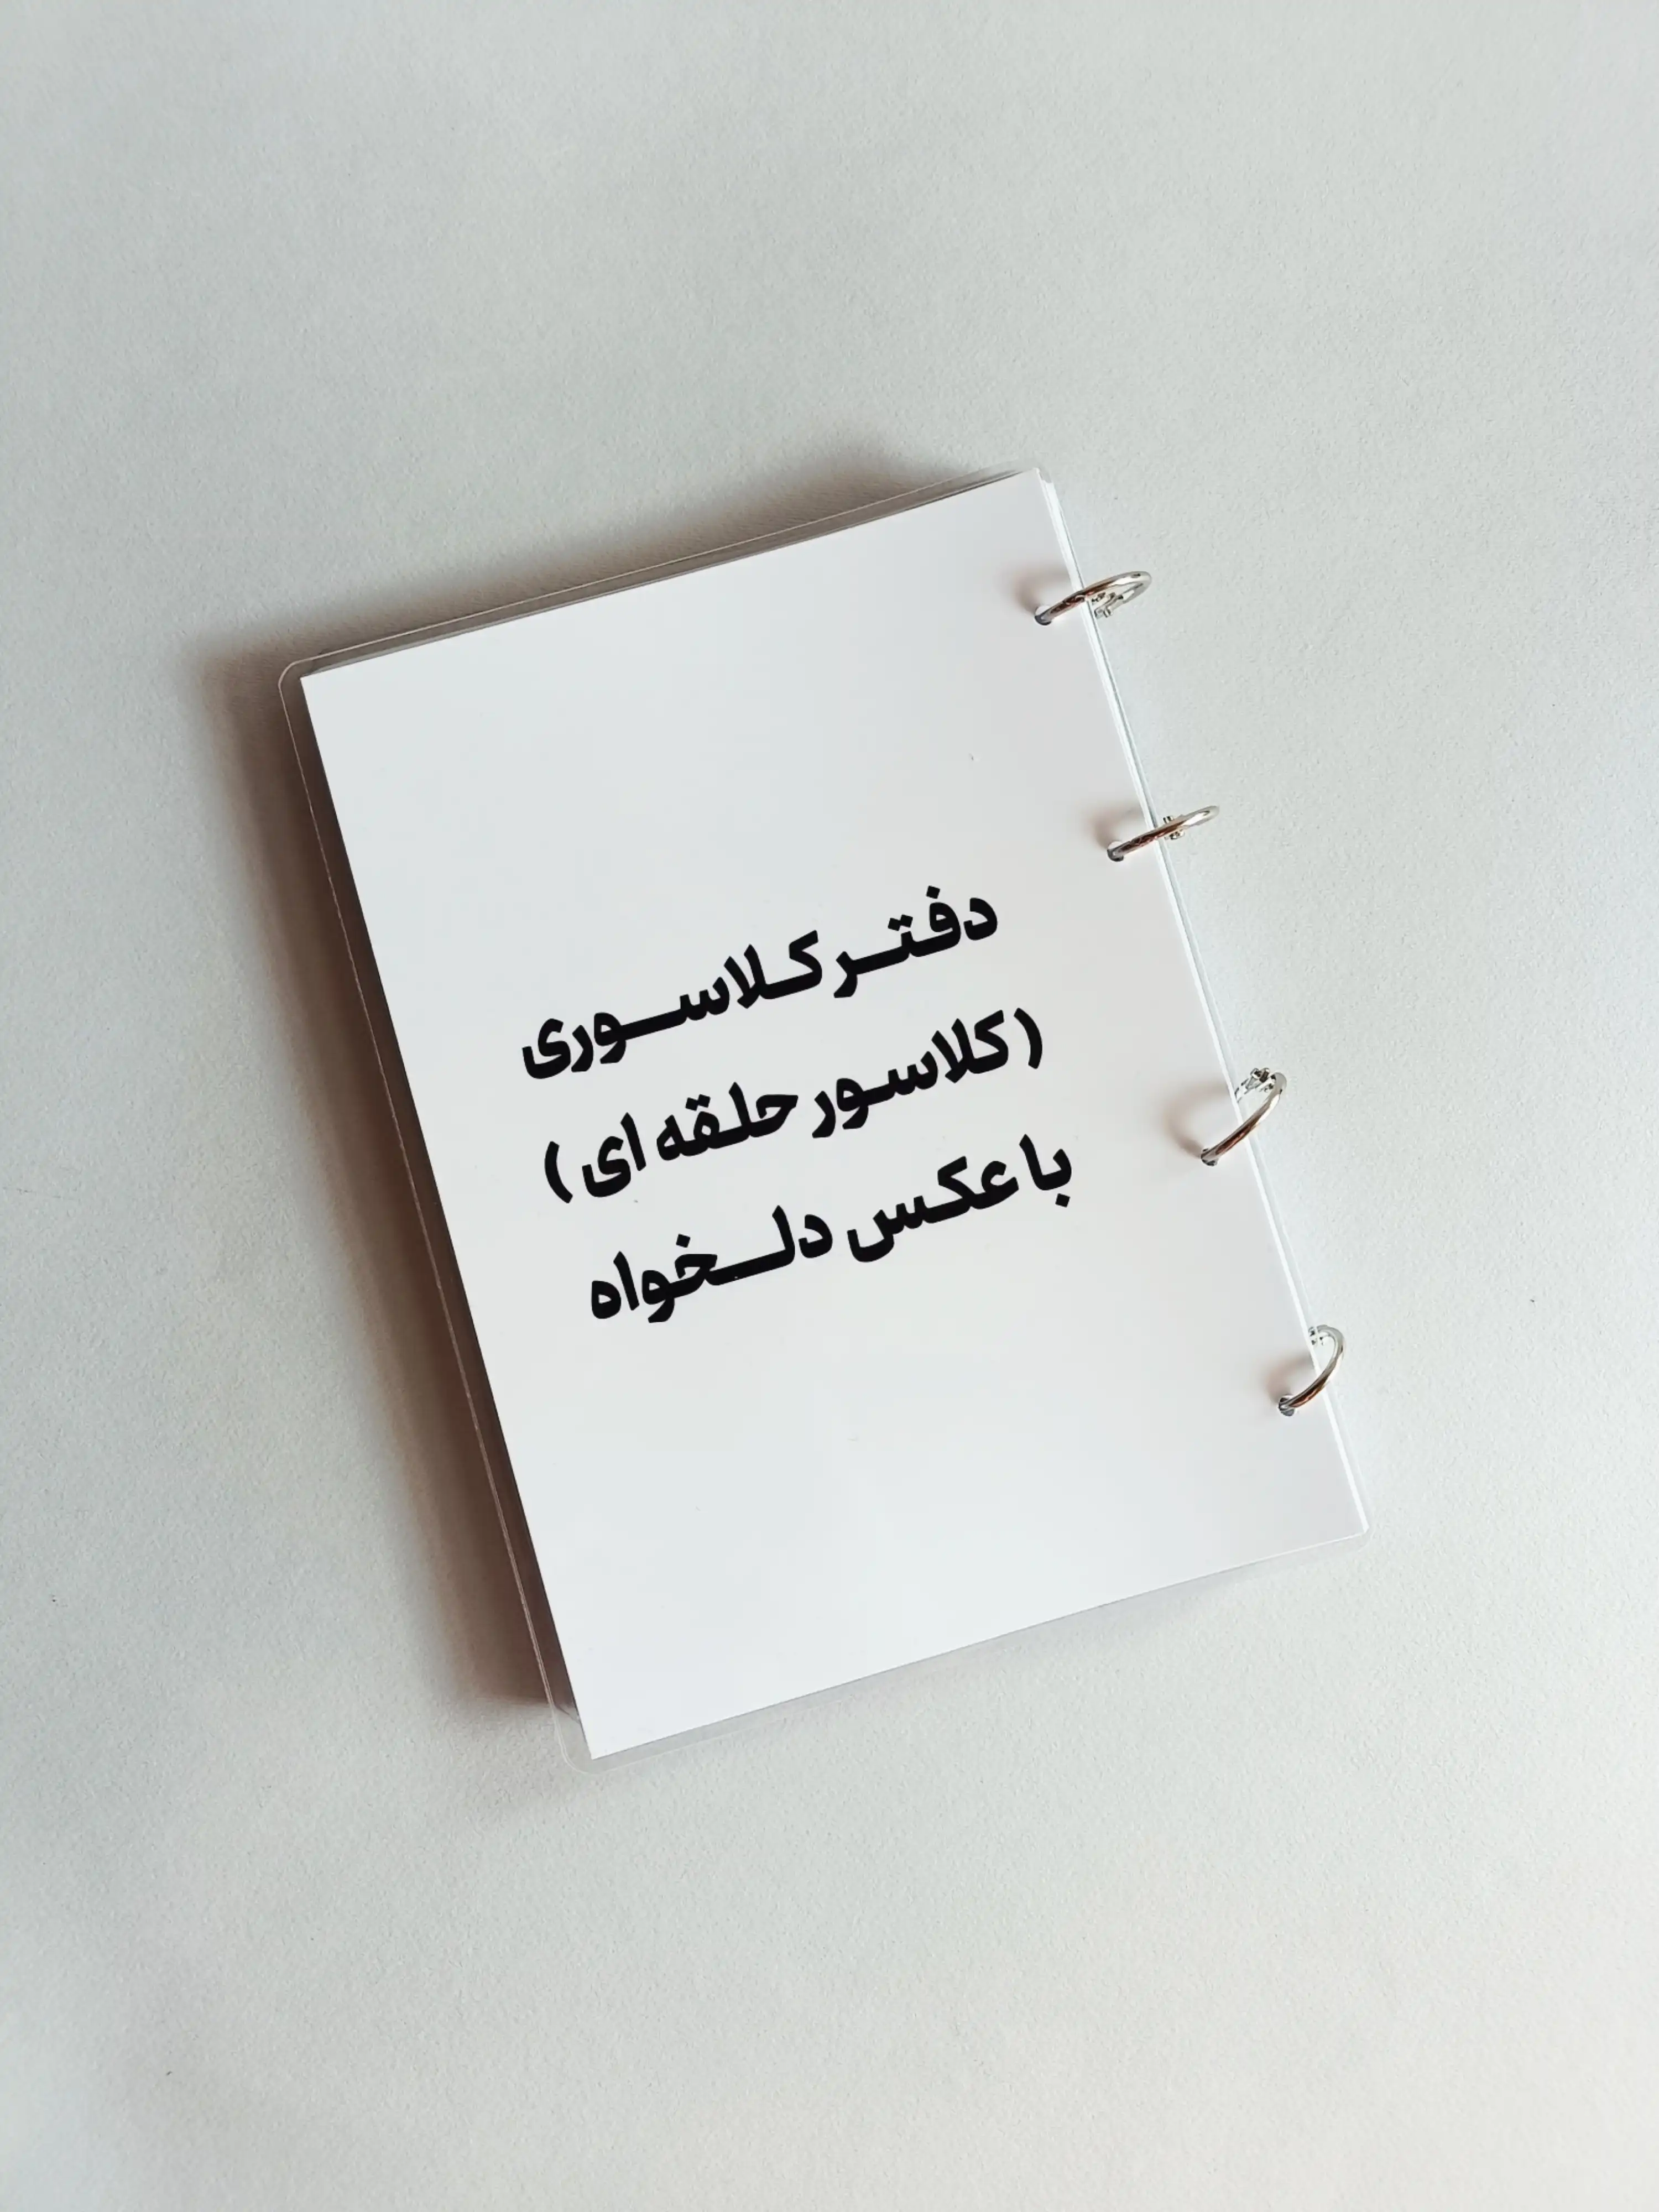 دفتر کلاسوری
(کلاسور حلقه ای)
با عکس دلخواه